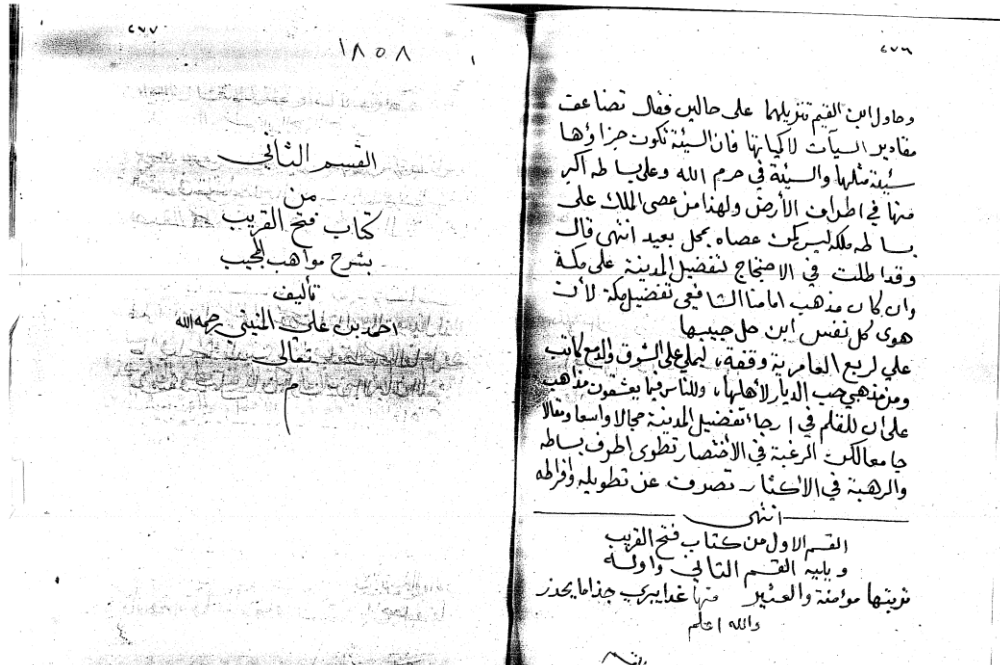 ٤٧٦
وحاول ابن القيم تنزيلهما على حالين فقال تضاعف
مقادير السيآت لا كمياتها فان السيئة تكون جزاؤها
سيئة مثلها والسيئة في حرم الله وعلى بساطه اكبر
منها في اطراف الأرض ولهذا من عصى الملك على
بساطه ملكه ليس كمن عصاه بمحل بعيد انتهى قال
وقد اطلت في الاحتجاج لتفضيل المدينة على مكة
وان كان مذهب امامنا الشافعي تفضيل مكة لأن
هوى كل نفس اين حل حبيبها
علي لربع العامرية وقفة، ليملي علي الشوق والدمع كاتب
ومن مذهبي حب الديار لأهلها، وللناس فيما يعشقون مذاهب
على ان للقلم في ارجاء تفضيل المدينة مجالا واسعا ومقالا
جامعا لكن الرغبة في الأختصار تطوى اطرف بساطه
والرهبة في الأكثار تصرف عن تطويله وافراطه
انتهى
القسم الاول من كتاب فتح القريب
ويليه القسم الثاني واوله
تربتها مؤمنة والعثير منها غدا يبري جذاما يحذر
والله اعلم
٤٧٧
١٨٥٨
١
القسم الثاني
من
كتاب فتح القريب
بشرح مواهب المجيب
تأليف
احمد بن علي المنيني رحمه الله
تعالى
م